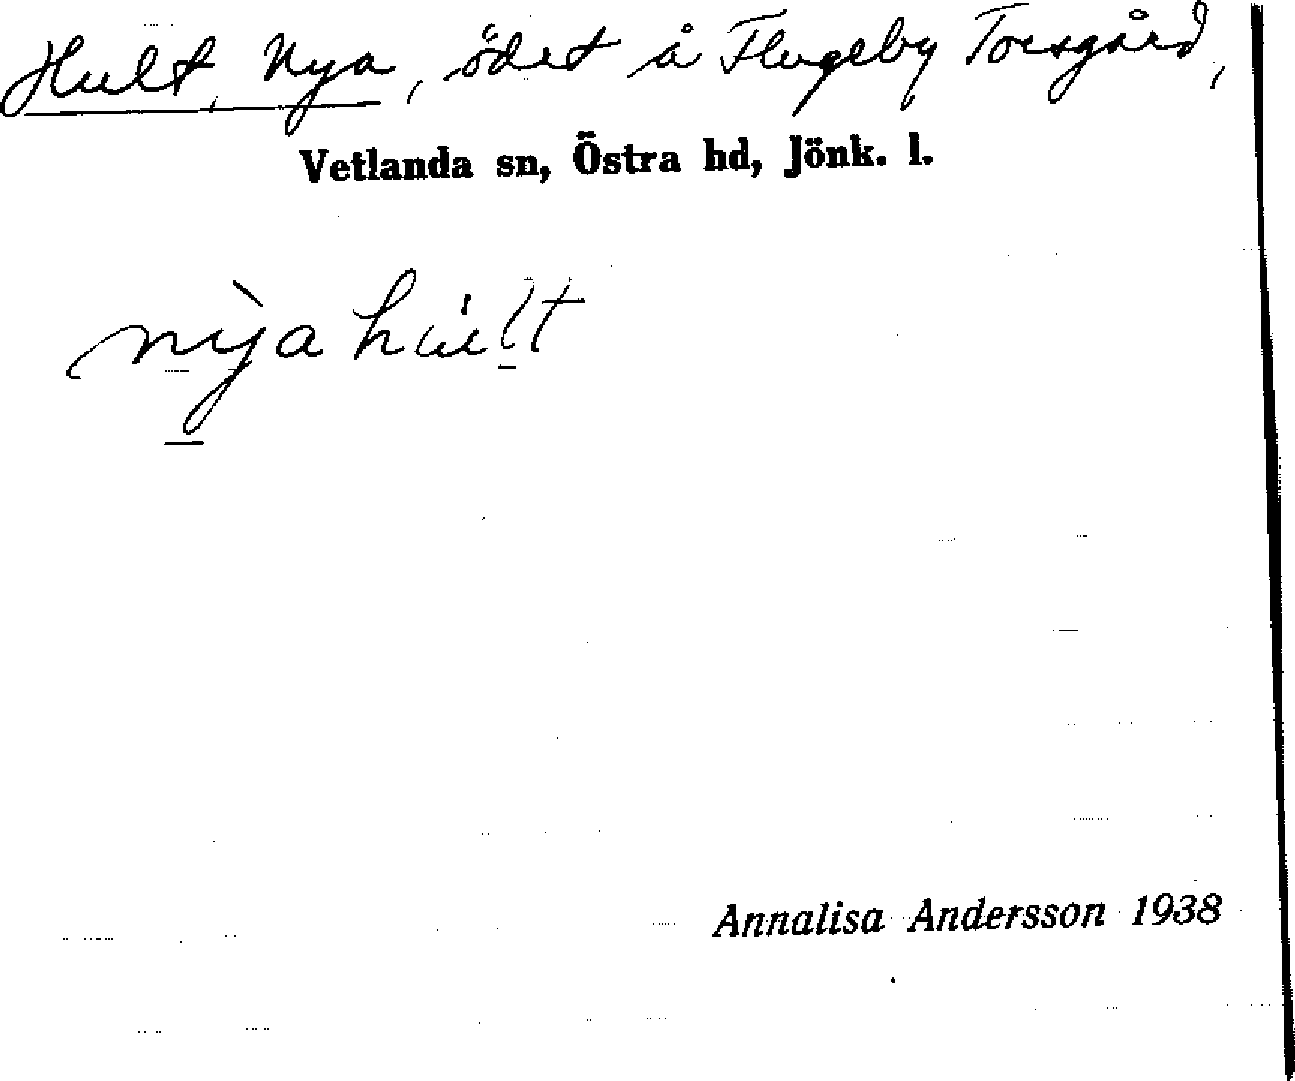 Hult, Nya, ödet å Flugeby Torsgård,
Vetlanda sn, Östra hd, Jönk. l.
nỳa húlt
Annalisa Andersson 1938